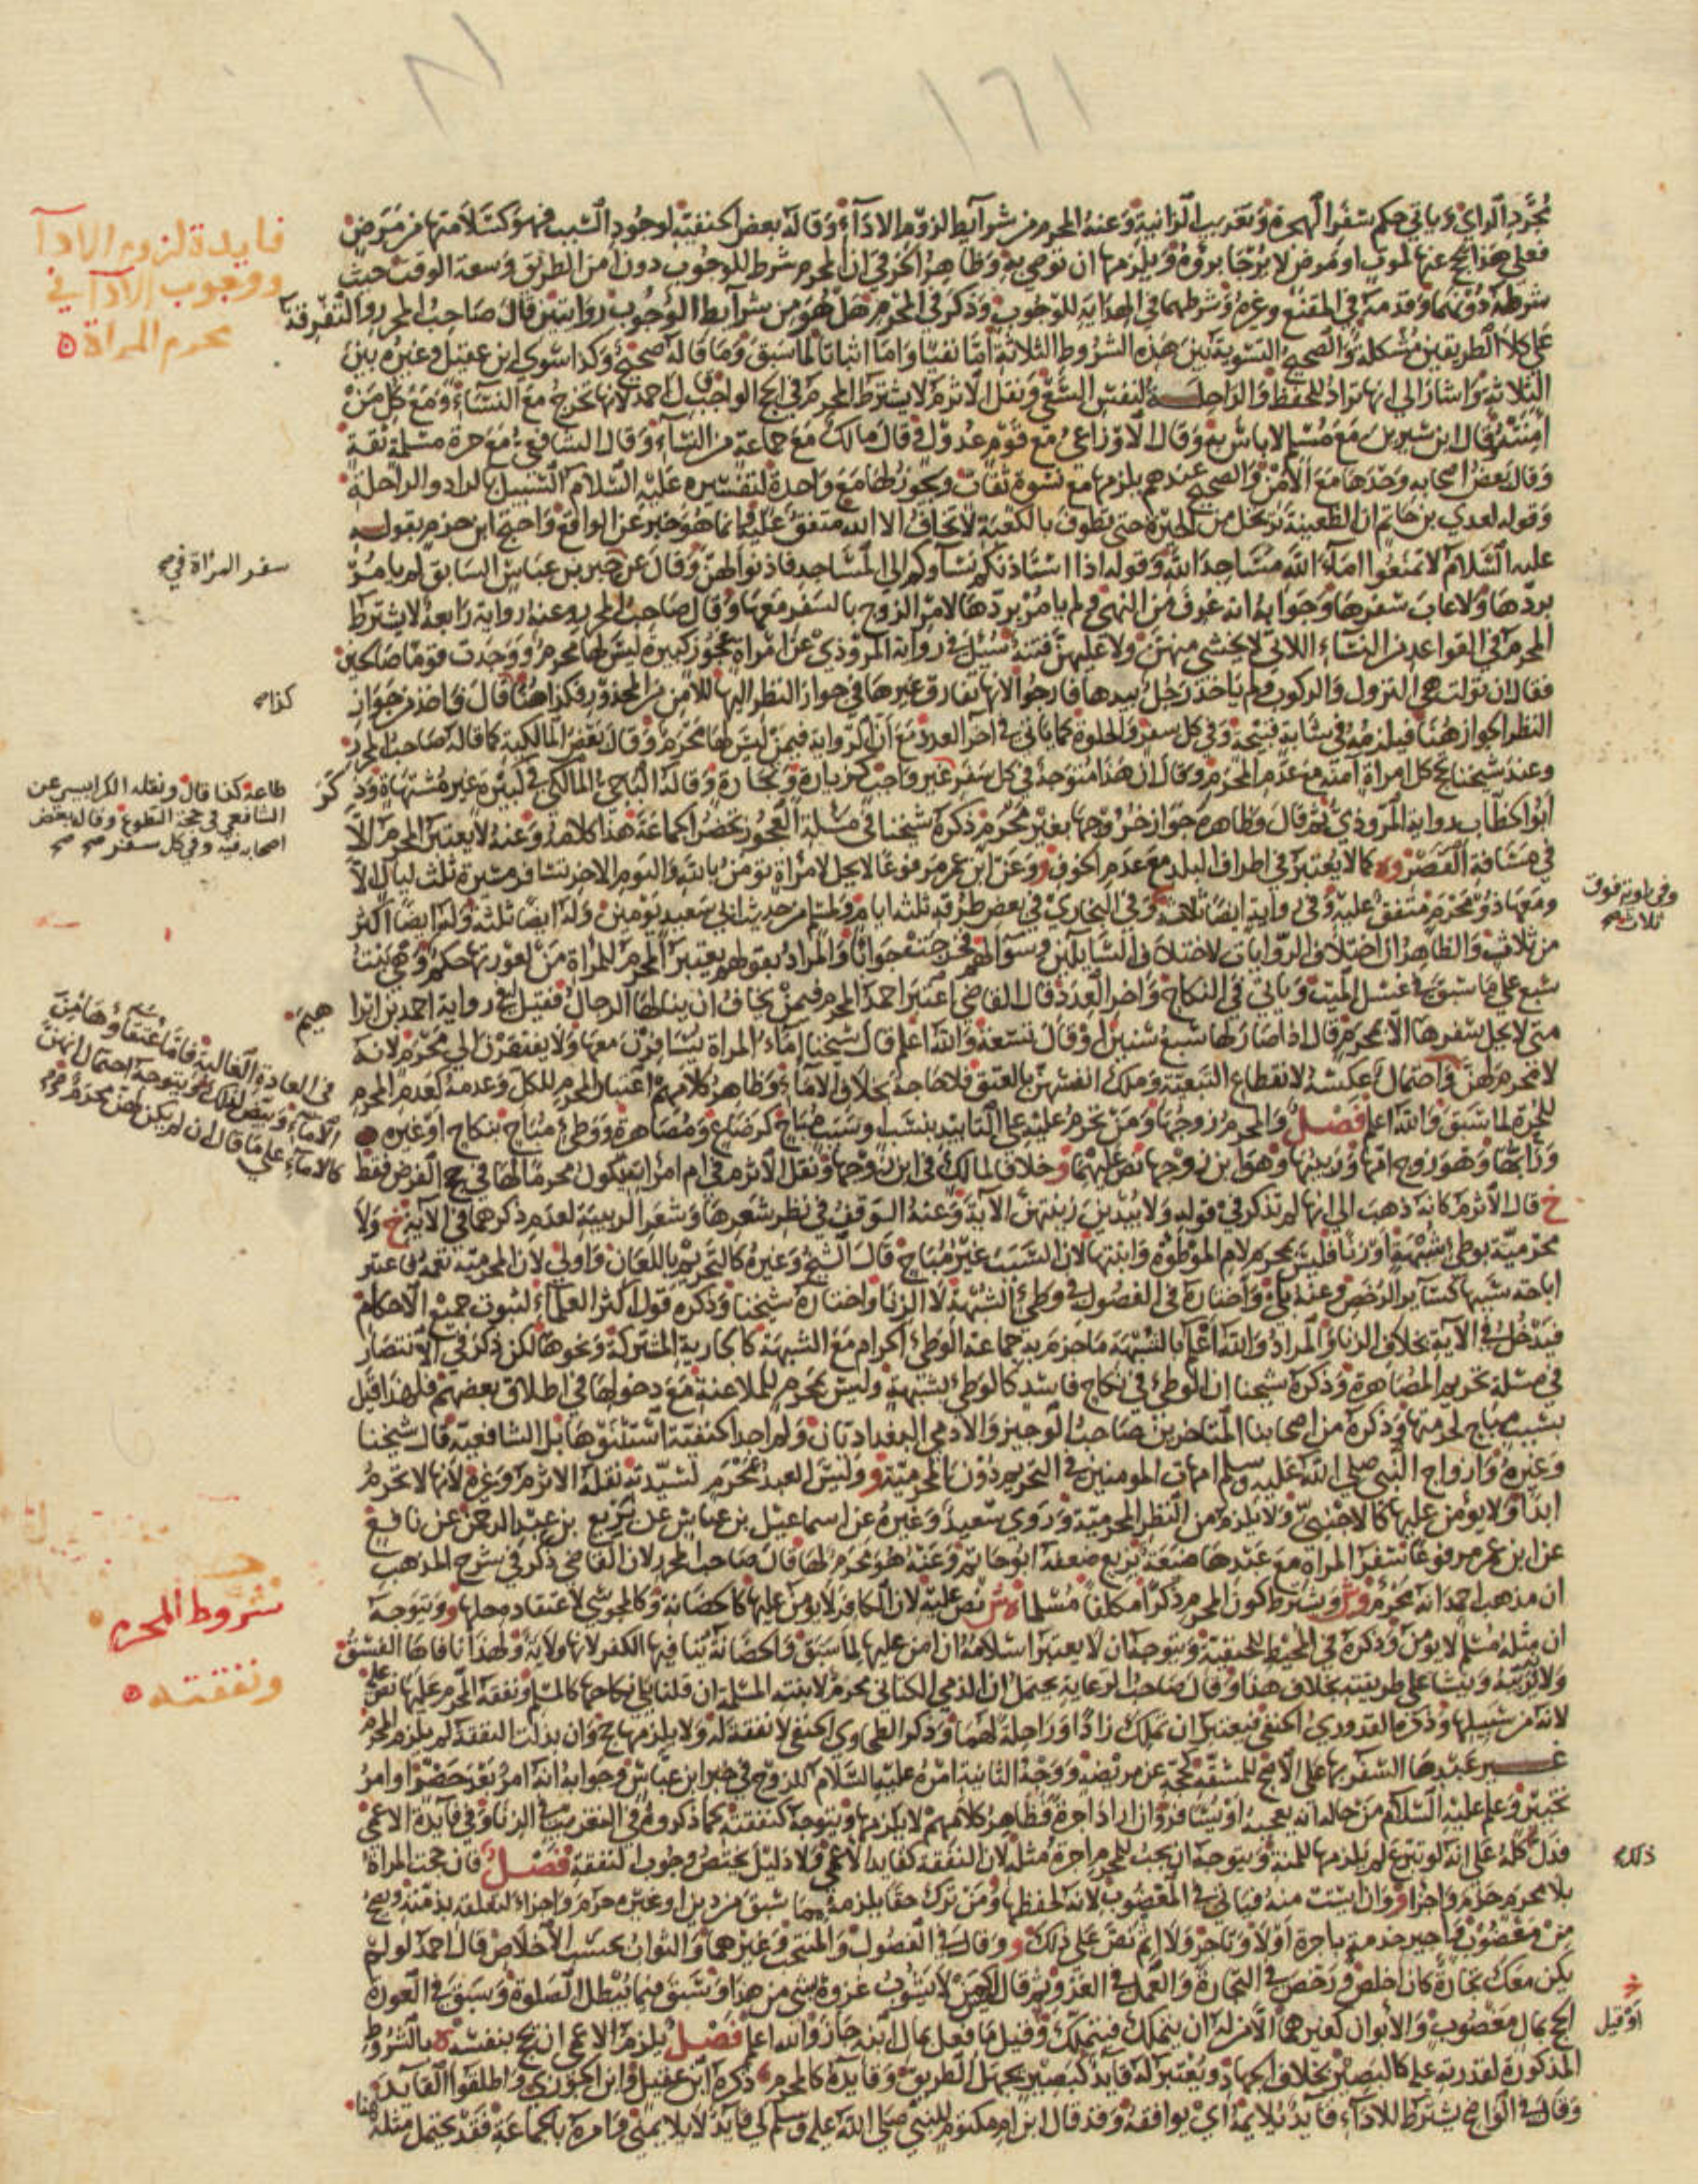 ١٦١
بمجرد الراي وياتي حكم سفر الهجرة وتغريب الزانية وعنه المحرم من شرايط لزوم الاداء وقاله بعض الحنفية لوجود السبب فهو كسلامتها من مرض
فعلى هذا يحج عنها لموت او مرض لا يرجا برؤه ويلزمها ان توصي به وظاهر الخرقي ان المحرم شرط للوجوب دون امن الطريق وسعة الوقت حيث
شرطه دونهما وقدمه في المقنع وغيره وشرطهما في الهداية للوجوب وذكر في المحرم هل هو من شرايط الوجوب روايتين قال صاحب المحرر والتفرقة
على كلا الطريقين مشكلة والصحيح التسوية بين هذه الشروط الثلاثة اما نفيا واما اثباتا لما سبق وما قاله صحيح وكذا سوى ابن عقيل وغيره بين
الثلاثة واشار الى انها تراد للحفظ والراحلة لنفس السعي ونقل الاثرم لا يشترط المحرم في الحج الواجب قال احمد لانها تخرج مع النساء ومع كل من
امنته وقال ابن سيرين مع مسلم لا باس به وقال الاوزاعي مع قوم عدول وقال مالك مع جماعة من النساء وقال الشافعي مع حرة مسلمة ثقة
وقال بعض اصحابه وحدها مع الامن والصحيح عندهم يلزمها مع نسوة ثقات ويجوز لها مع واحدة لتفسيره عليه السلام السبيل بالزاد والراحلة
وقوله لعدي بن حاتم ان الظعينة ترتحل من الحيرة حتى تطوف بالكعبة لا تخاف الا الله متفق عليه وانما هو خبر عن الواقع واحتج ابن حزم بقوله
عليه السلام لا تمنعوا اماء الله مساجد الله وقوله اذا استاذنكم نساوكم الى المساجد فاذنوا لهن وقال عن خبر بن عباس السابق لم يامر
بردها ولا عاب سفرها وجوابه انه عرف من النهي ولم يامر بردها لامر الزوج بالسفر معها وقال صاحب المحرر وعنه رواية رابعة لا يشترط
المحرم في القواعد من النساء اللاتي لا يخشى منهن ولا عليهن فتنة سئل في رواية المروذي عن امراة عجوز كبيرة ليس لها محرم ووجدت قوما صالحين
فقال ان تولت هي النزول والركوب ولم ياخذ رجل بيدها فارجوا لانها تفارق غيرها في جواز النظر اليها للامن من المحذور فكذا هنا كذا قال فاخذ من جواز
النظر الجواز هنا فيلزمه في شابة قبيحة وفي كل سفر والخلوة كما ياتي في اخر العدد مع ان الرواية فيمن ليس لها محرم وقال بعض المالكية كما قاله صاحب المحرر
وعند شيخنا تحج كل امراة امنة مع عدم المحرم وقال ان هذا متوجه في كل سفر غير واجب كزيارة وتجارة وقاله الباجي المالكي في كبيرة غير مشتهاة وذكر
ابو الخطاب رواية المروذي ثم قال وظاهره جواز خروجها بغير محرم ذكره شيخنا في مسلة العجوز تحضر الجماعة هذا كلامه وعنه لا يعتبر المحرم الا
في مسافة القصر كما لا يعتبر في اطراف البلد مع عدم الخوف وعن ابن عمر مرفوعا لا يحل لامراة تومن بالله واليوم الاخر تسافر مسيرة ثلث ليال الا
ومعها ذو محرم متفق عليه وفي رواية ايضا ثلاثة وفي البخاري في بعض طرقه ثلثة ايام ولمسلم من حديث ابي سعيد يومين وله ايضا ثلثة وله ايضا اكثر
من ثلاث والظاهر ان اختلاف الروايات لاختلاف السايلين وسوالهم فخرجت جوابا والمراد بقولهم يعتبر المحرم للمراة من لعورتها حكم وهي بنت
سبع على ما سبق في غسل الميت وياتي في النكاح واخر العدد قال القاضي اعتبر احمد المحرم فيمن يخاف ان ينالها الرجال فقيل له في رواية احمد بن ابرا هيم
متى لا يحل سفرها الا بمحرم قال اذا صار لها سبع سنين او قال تسعة والله اعلم قال شيخنا اماء المراة يسافرن معها ولا يفتقرن الى محرم لانه
لا محرم لهن في العادة الغالبة فاما عتقاؤها من
الاماء وبيض لذلك ويتوجه احتمال انهن
كالاماء على ما قال ان لم يكن لهن محرم
واحتمال عكسه لانقطاع التبعية وملك انفسهن بالعتق فلا حاجة بخلاف الاماء وظاهر كلامهم اعتبار المحرم للكل وعدمه كعدم المحرم
للحرة لما سبق والله اعلم فصل والمحرم زوجها ومن تحرم عليه على التابيد بنسب او سبب مباح كرضاع ومصاهرة ووطئ مباح بنكاح او غيره
ورابها وهو زوج امها وربيبها وهو ابن زوجها نص عليهما وخلاف لمالك في ابن زوجها ونقل الاثرم في ام امراته يكون محرما لها في حج الفرض فقط
خ قال الاثرم كانه ذهب الى انها لم تذكر في قوله ولا يبدين زينتهن الاية وعنه الوقف في نظر شعرها وشعر الربيبة لعدم ذكرهما في الاية خ ولا
محرمية بوطئ شبهة او زنا فليس بمحرم لام الموطوة وابنتها لان السبب غير مباح قال الشيخ وغيره كالتحريم باللعان واولى لان المحرمية نعمة فاعتبر
اباحة سببها كساير الرخص وعنه بلى واختاره في الفصول في وطئ الشبهة لا الزنا واختاره شيخنا وذكره قول اكثر العلماء لثبوت جميع الاحكام
فيدخل في الاية بخلاف الزنا والمراد والله اعلم بالشبهة ما جزم به جماعة الوطئ الحرام مع الشبهة كالجارية المشتركة ونحوها لكن ذكر في الانتصار
في مسلة تحريم المصاهرة وذكره شيخنا ان الوطئ في نكاح فاسد كالوطئ بشبهة وليس بمحرم للملاعنة مع دخولها في اطلاق بعضهم فلهذا قيل
بسبب مباح لحرمتها وذكره من اصحابنا المتاخرين صاحب الوجيز والادمي البغدادتان ولم اجد الحنفية استثنوها بل الشافعية قال شيخنا
وغيره وازواج النبي صلى الله عليه وسلم امهات المومنين في التحريم دون المحرمية وليس العبد بمحرم لسيدته نقله الاثرم وغيره لانها لا تحرم
ابدا ولا يؤمن عليها كالاجنبي ولا يلزم من النظر المحرمية وروى سعيد وغيره عن اسماعيل بن عياش عن بزيع بن عبد الرحمن عن نافع
عن ابن عمر مرفوعا سفر المراة مع عبدها ضيعة بزيع ضعفه ابو حاتم وعنه هو محرم لها قال صاحب المحرر لان القاضي ذكر في شرح المذهب
ان مذهب احمد انه محرم وش ويشترط كون المحرم ذكرا مكلفا مسلما نص عليه لان الكافر لا يؤمن عليها كالحضانة وكالمجوسي لاعتقاده حلها ويتوجه
ان مثله مسلم لا يؤمن وذكره في المحيط للحنفية ويتوجه ان لا يعتبر اسلامه ان امن عليها لما سبق والحضانة ينافيها الكفر لانها ولاية ولهذا نافاها الفسق
ولانه يربيه وينشا على طريقته بخلاف هذا وقال صاحب الرعاية يحتمل ان الذمي الكتابي محرم لابنته المسلمة ان قلنا يلي نكاحها كالمسلم ونفقة المحرم عليها نص عليه
لانه من سبيلها وذكره القدوري الحنفي فيعتبر ان تملك زادا وراحلة لهما وذكر الطحاوي الحنفي لا نفقة له ولا يلزمها حج وان بذلت النفقة لم يلزم المحرم
غير عبدها السفر بها على الاصح للمشقة كحجه عن مريضة ووجه الثانية امره عليه السلام للزوج في خبر ابن عباس وجوابه انه امر بعد حضر او امر
تخيير وعلم عليه السلام من حاله انه يعجبه ان يسافر وان اراد اجرة فظاهر كلامهم لا يلزمها ويتوجه كنفقته كما ذكروه في التغريب في الزنا وفي قايد الاعمى
فدل ذلك كله على انه لو تبرع لم يلزمها للمنة ويتوجه ان يجب للمحرم اجرة مثله لان النفقة كقايد الاعمى ولا دليل يختص وجوب النفقة فصل فان حجت المراة
بلا محرم حرم واجزا وان ايست منه فياتي في المعضوب لانه لحفظها ومن ترك حقا يلزمه مما سبق من دين او غيره حرم واجزاء لتعلقه بذمته ويصح
من معضوب واجير خدمة باجرة اولا وتاجر ولا اثم نص على ذلك وقال في الفصول والمنتخب وغيرهما والثواب بحسب الاخلاص قال احمد لو لم
يكن معك تجارة كان اخلص ورخص في التجارة والعمل في الغزو ثم قال ليس كمن لا يشوب غزوه بشي من هذا وسبق فيما يبطل الصلوة وسبق في العورة
الحج بمال مغصوب والابوان كغيرهما الا من له ان يتملك فيتملك وقيل ما فعل بمال ابنه جاز والله اعلم فصل يلزم الاعمى ان يحج بنفسه بالشروط
المذكورة لقدرته عليه كالبصير بخلاف الجهاد ويعتبر له قايد كبصير يجهل الطريق وقايده كالمحرم ذكره ابن عقيل وابن الجوزي واطلقوا القايد هنا
وقال في الواضح يشترط للاداء قايد يلايمه اي يوافقه وقد قال ابن ام مكتوم للنبي صلى الله عليه وسلم لي قايد لا يلايمني وامره بالجماعة فقد يحتمل مثله
فايدة لزوم الادا
ووجوب الادا في
محرم المراة
سفر المراة في
كذا
طاعة كذا قال ونقله الكرابيسي عن
الشافعي في حجة التطوع وقاله بعض
اصحابه فيه وفي كل سفر صح
وفي رواية فوق
ثلاث
شروط المحرم
ونفقته
ذلك
او قيل